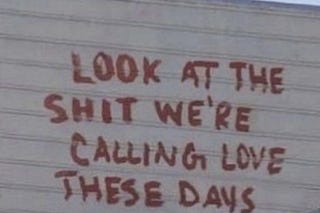 LOOK AT THE
SHIT WE'RE
CALLING LOVE
THESE DAYS